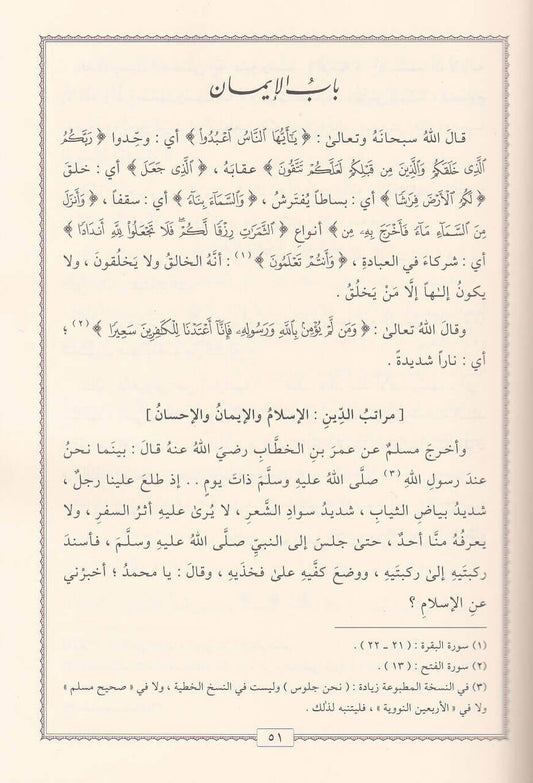 بابُ الإيمان
قالَ اللهُ سبحانَهُ وتعالىٰ : ﴿ يَٰٓأَيُّهَا ٱلنَّاسُ ٱعْبُدُوا۟ ﴾ أي : وحِّدوا ﴿ رَبَّكُمُ
ٱلَّذِى خَلَقَكُمْ وَٱلَّذِينَ مِن قَبْلِكُمْ لَعَلَّكُمْ تَتَّقُونَ ﴾ عقابَهُ ، ﴿ ٱلَّذِى جَعَلَ ﴾ أي : خلقَ
﴿ لَكُمُ ٱلْأَرْضَ فِرَٰشًا ﴾ أي : بساطاً يُفتَرشُ ، ﴿ وَٱلسَّمَآءَ بِنَآءً ﴾ أي : سقفاً ، ﴿ وَأَنزَلَ
مِنَ ٱلسَّمَآءِ مَآءً فَأَخْرَجَ بِهِۦ مِنَ ﴾ أنواعِ ﴿ ٱلثَّمَرَٰتِ رِزْقًا لَّكُمْ ۖ فَلَا تَجْعَلُوا۟ لِلَّهِ أَندَادًا ﴾
أي : شركاءَ في العبادةِ ، ﴿ وَأَنتُمْ تَعْلَمُونَ ﴾ (١) : أنَّهُ الخالقُ ولا يَخلُقونَ ، ولا
يكونُ إلـٰهاً إلَّا مَنْ يَخلُقُ .
وقالَ اللهُ تعالىٰ : ﴿ وَمَن لَّمْ يُؤْمِنۢ بِٱللَّهِ وَرَسُولِهِۦ فَإِنَّآ أَعْتَدْنَا لِلْكَٰفِرِينَ سَعِيرًا ﴾ (٢) ؛
أي : ناراً شديدةً .
[ مراتبُ الدِّينِ : الإسلامُ والإيمانُ والإحسانُ ]
وأخرجَ مسلمٌ عن عمرَ بنِ الخطَّابِ رضيَ اللهُ عنهُ قالَ : بينَما نحنُ
عندَ رسولِ اللهِ (٣) صلَّى اللهُ عليهِ وسلَّمَ ذاتَ يومٍ .. إذ طلعَ علينا رجلٌ ،
شديدُ بياضِ الثيابِ ، شديدُ سوادِ الشَّعرِ ، لا يُرىٰ عليهِ أثرُ السفرِ ، ولا
يعرفُهُ منَّا أحدٌ ، حتىٰ جلسَ إلى النبيِّ صلَّى اللهُ عليهِ وسلَّمَ ، فأسندَ
ركبتَيهِ إلىٰ ركبتَيهِ ، ووضعَ كفَّيهِ علىٰ فخذَيهِ ، وقالَ : يا محمدُ ؛ أخبِرْني
عنِ الإسلامِ ؟
(١) سورة البقرة : ( ٢١ ـ ٢٢ ) .
(٢) سورة الفتح : ( ١٣ ) .
(٣) في النسخة المطبوعة زيادة : ( نحن جلوس ) وليست في النسخ الخطية ، ولا في « صحيح مسلم »
ولا في « الأربعين النووية » ، فليتنبه لذلك .
٥١